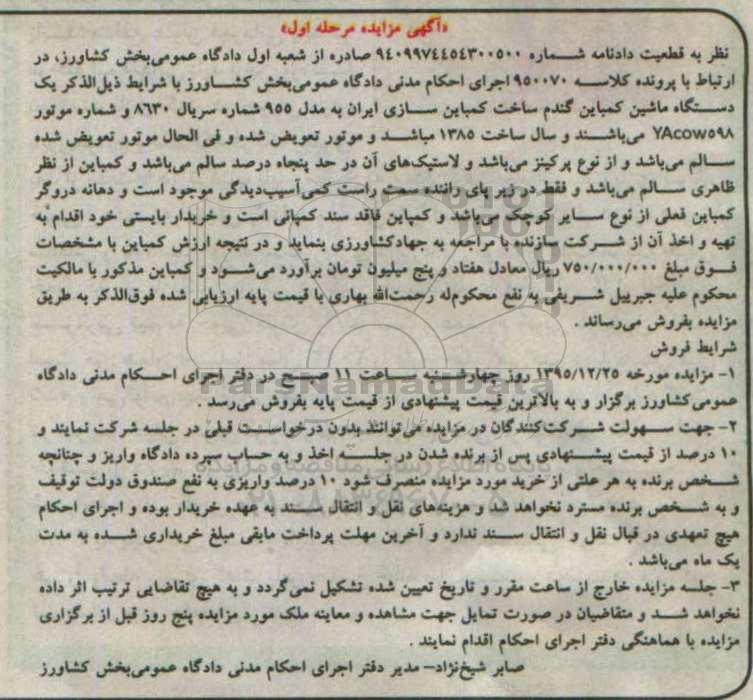 «آگهی مزایده مرحله اول»
نظر به قطعیت دادنامه شماره ۹۴۰۹۹۷۴۴۵۴۳۰۰۵۰۰ صادره از شعبه اول دادگاه عمومی‌بخش کشاورز، در
ارتباط با پرونده کلاسه ۹۵۰۰۷۰ اجرای احکام مدنی دادگاه عمومی‌بخش کشاورز با شرایط ذیل‌الذکر یک
دستگاه ماشین کمباین گندم ساخت کمباین سازی ایران به مدل ۹۵۵ شماره سریال ۸۶۳۰ و شماره موتور
YAcow۵۹۸ می‌باشند و سال ساخت ۱۳۸۵ مباشد و موتور تعویض شده و فی الحال موتور تعویض شده
سالم می‌باشد و از نوع پرکینز می‌باشد و لاستیک‌های آن در حد پنجاه درصد سالم می‌باشد و کمباین از نظر
ظاهری سالم می‌باشد و فقط در زیر پای راننده سمت راست کمی‌آسیب‌دیدگی موجود است و دهانه دروگر
کمباین فعلی از نوع سایر کوچک می‌باشد و کمپاین فاقد سند کمپانی است و خریدار بایستی خود اقدام به
تهیه و اخذ آن از شرکت سازنده با مراجعه به جهادکشاورزی بنماید و در نتیجه ارزش کمباین با مشخصات
فوق مبلغ ۷۵۰/۰۰۰/۰۰۰ ریال معادل هفتاد و پنج میلیون تومان برآورد می‌شود و کمباین مذکور با مالکیت
محکوم علیه جبرییل شریفی به نفع محکوم‌له رحمت‌الله بهاری با قیمت پایه ارزیابی شده فوق‌الذکر به طریق
مزایده بفروش می‌رساند .
شرایط فروش
۱- مزایده مورخه ۱۳۹۵/۱۲/۲۵ روز چهارشنبه ساعت ۱۱ صبح در دفتر اجرای احکام مدنی دادگاه
عمومی‌کشاورز برگزار و به بالاترین قیمت پیشنهادی از قیمت پایه بفروش می‌رسد .
۲- جهت سهولت شرکت‌کنندگان در مزایده می‌توانند بدون درخواست قبلی در جلسه شرکت نمایند و
۱۰ درصد از قیمت پیشنهادی پس از برنده شدن در جلسه اخذ و به حساب سپرده دادگاه واریز و چنانچه
شخص برنده به هر علتی از خرید مورد مزایده منصرف شود ۱۰ درصد واریزی به نفع صندوق دولت توقیف
و به شخص برنده مسترد نخواهد شد و هزینه‌های نقل و انتقال سند به عهده خریدار بوده و اجرای احکام
هیچ تعهدی در قبال نقل و انتقال سند ندارد و آخرین مهلت پرداخت مابقی مبلغ خریداری شده به مدت
یک ماه می‌باشد .
۳- جلسه مزایده خارج از ساعت مقرر و تاریخ تعیین شده تشکیل نمی‌گردد و به هیچ تقاضایی ترتیب اثر داده
نخواهد شد و متقاضیان در صورت تمایل جهت مشاهده و معاینه ملک مورد مزایده پنج روز قبل از برگزاری
مزایده با هماهنگی دفتر اجرای احکام اقدام نمایند .
صابر شیخ‌نژاد– مدیر دفتر اجرای احکام مدنی دادگاه عمومی‌بخش کشاورز
ParsNamadData